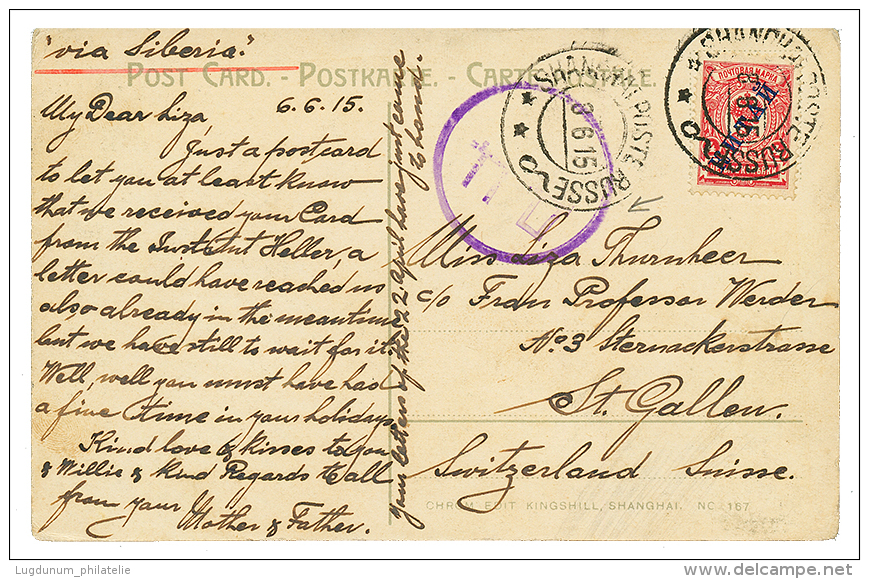 "via Siberia."
POST CARD. - POSTKARTE. - CARTE POSTALE.
My Dear Liza 6.6.15.
Just a postcard
to let you at least know
that we received your Card
from the Institut Heller, a
letter could have reached us
also already in the meantime
but we have still to wait for it.
Well, well you must have had
a fine time in your holidays
Kind love & kisses to you
& Willie & kind Regards to all
from your
Mother & Father.
Your letters of the 22 April have just come
to hand.
SHANGHAI POSTE RUSSE
8 6 15
SHANGHAI POSTE RUSSE
ПОЧТОВАЯ МАРКА
КИТАЙ
Miss Liza Thurnheer
c/o Frau Professor Werder
No. 3 Sternackerstrasse
St. Gallen.
Switzerland Suisse.
CHROM. EDIT KINGSHILL, SHANGHAI. NO. 167
Lugdunum_philatelie
delcampe.net